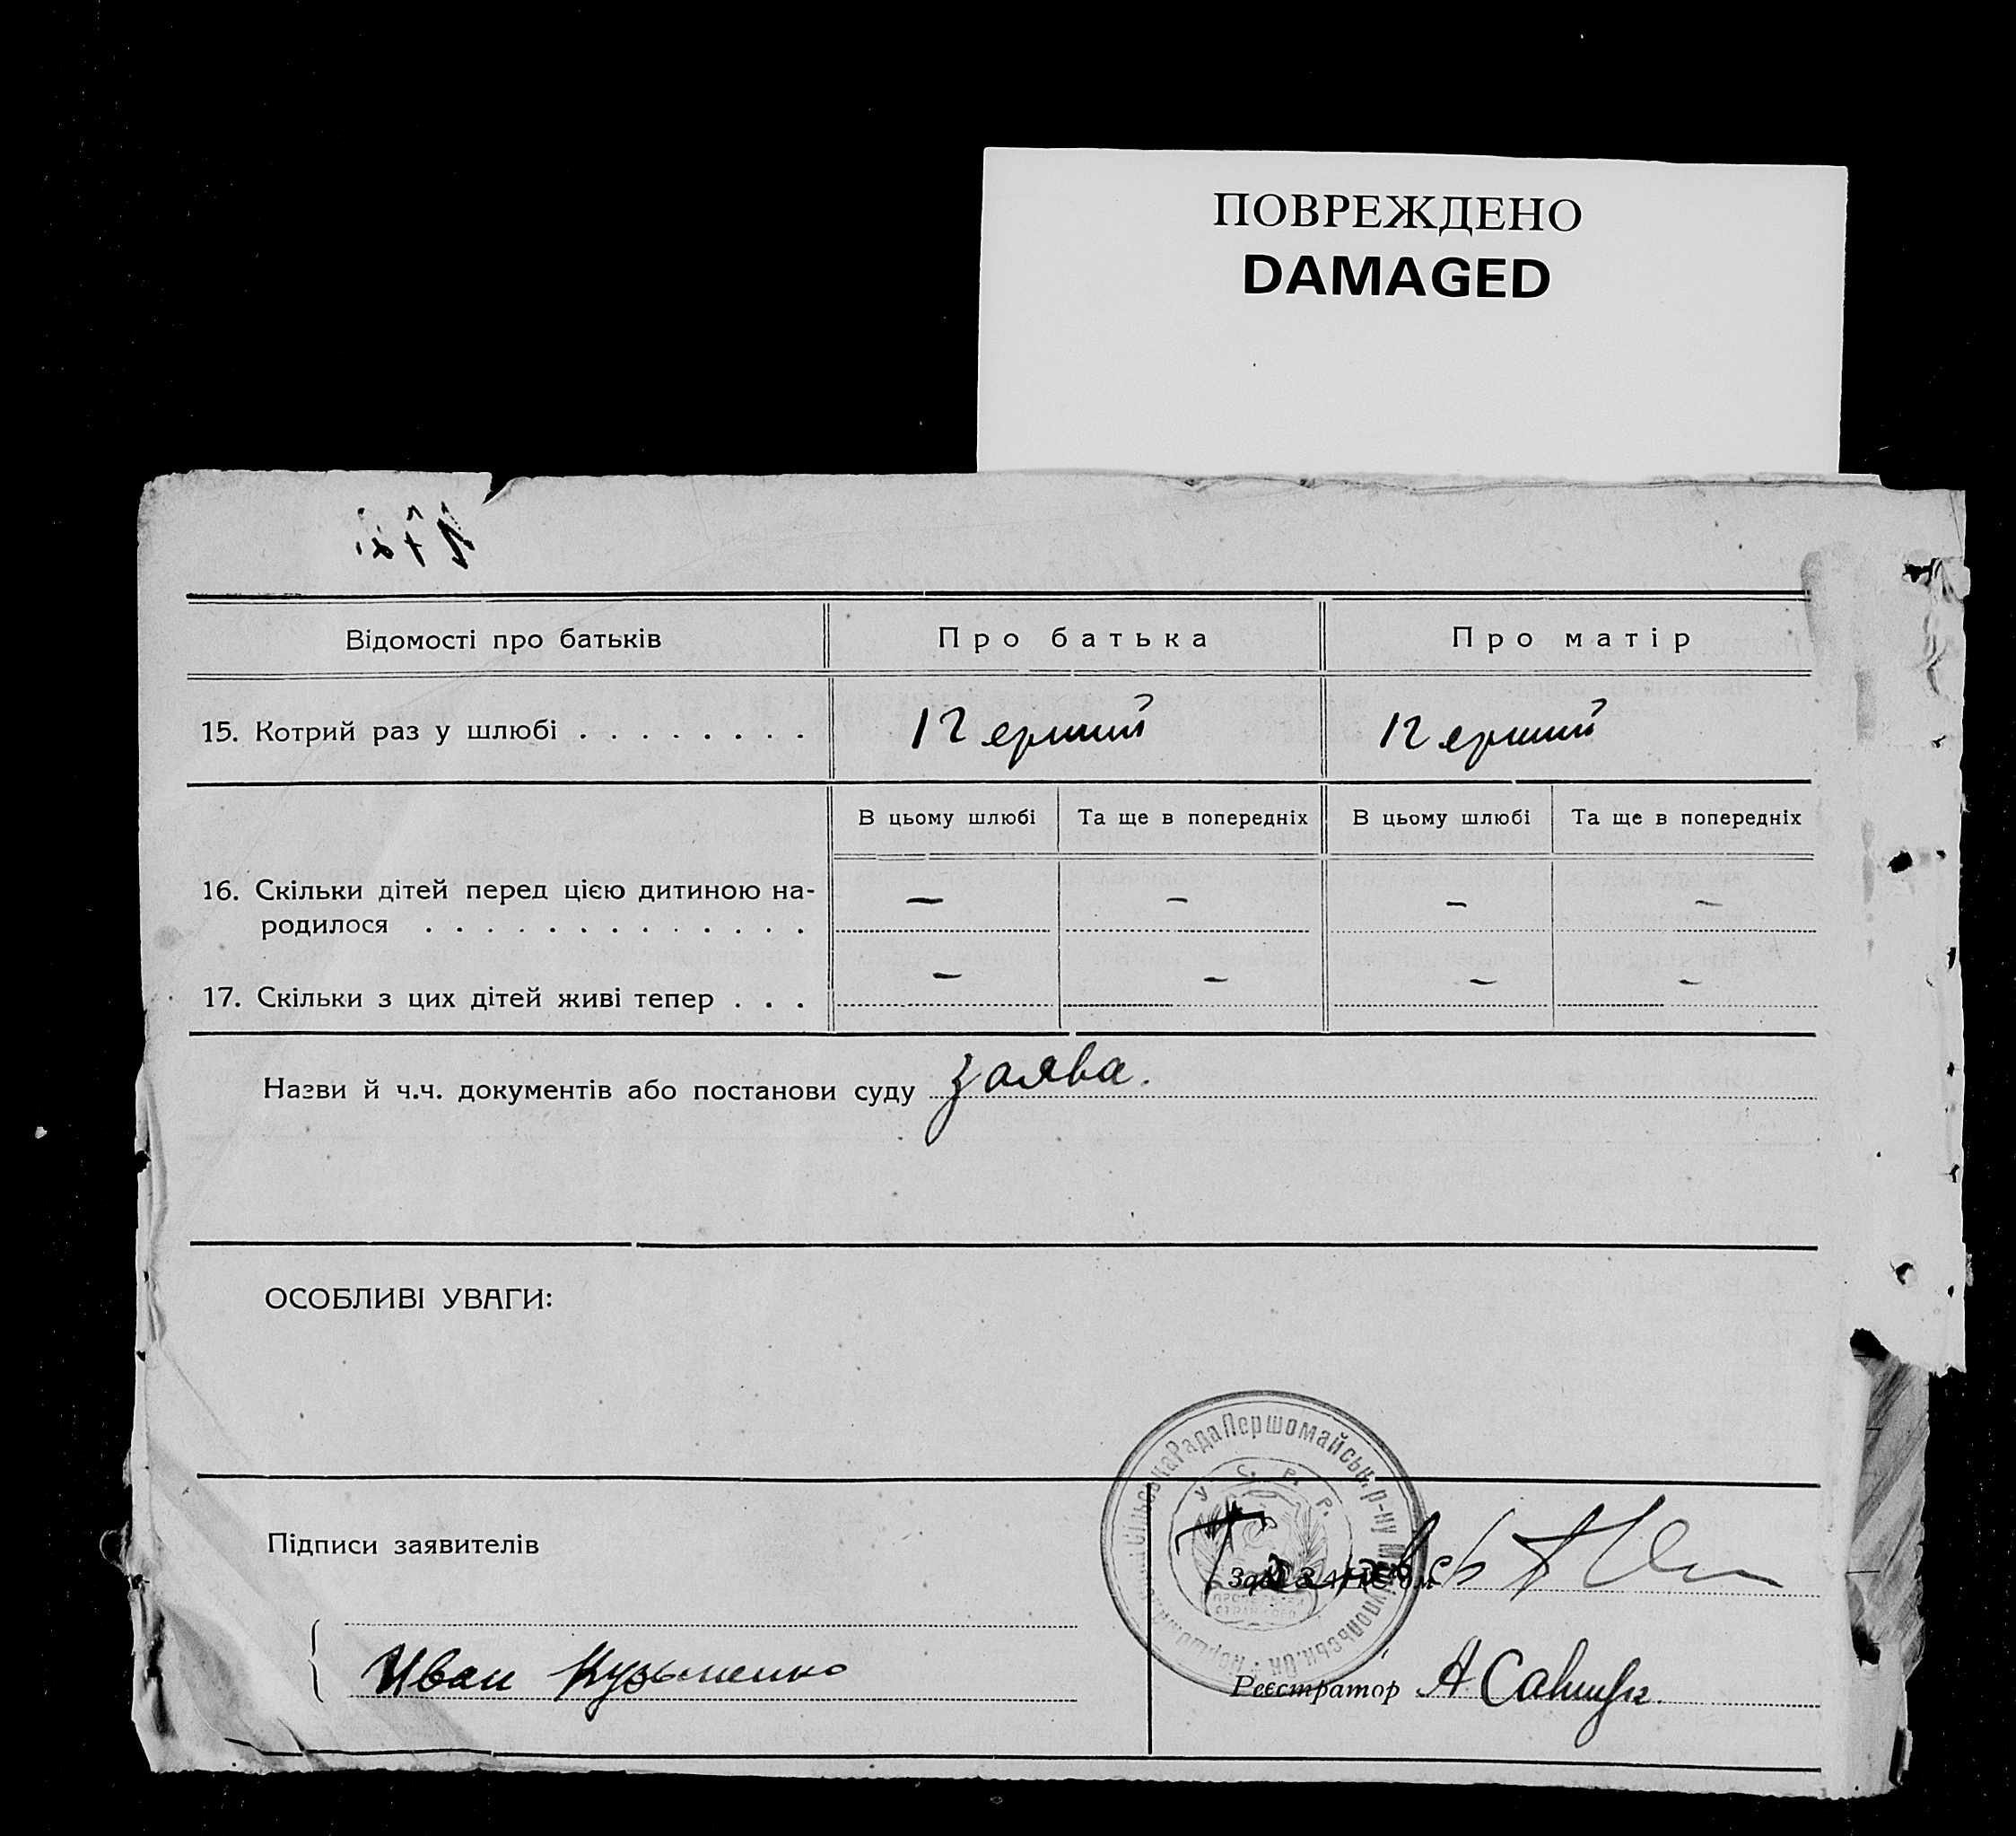 ПОВРЕЖДЕНО
DAMAGED
Відомості про батьків
Про батька
Про матір
15. Котрий раз у шлюбі . . . . . . . .
Перший
Перший
В цьому шлюбі
Та ще в попередніх
В цьому шлюбі
Та ще в попередніх
16. Скільки дітей перед цією дитиною на-
родилося . . . . . . . . . . . . .
– – – –
17. Скільки з цих дітей живі тепер . . .
– – – –
Назви й ч.ч. документів або постанови суду заява.
ОСОБЛИВІ УВАГИ:
Рада Першомайськ. р-ну
У. С. Р. Р.
Підписи заявителів
Иван Кузьменко
Реєстратор